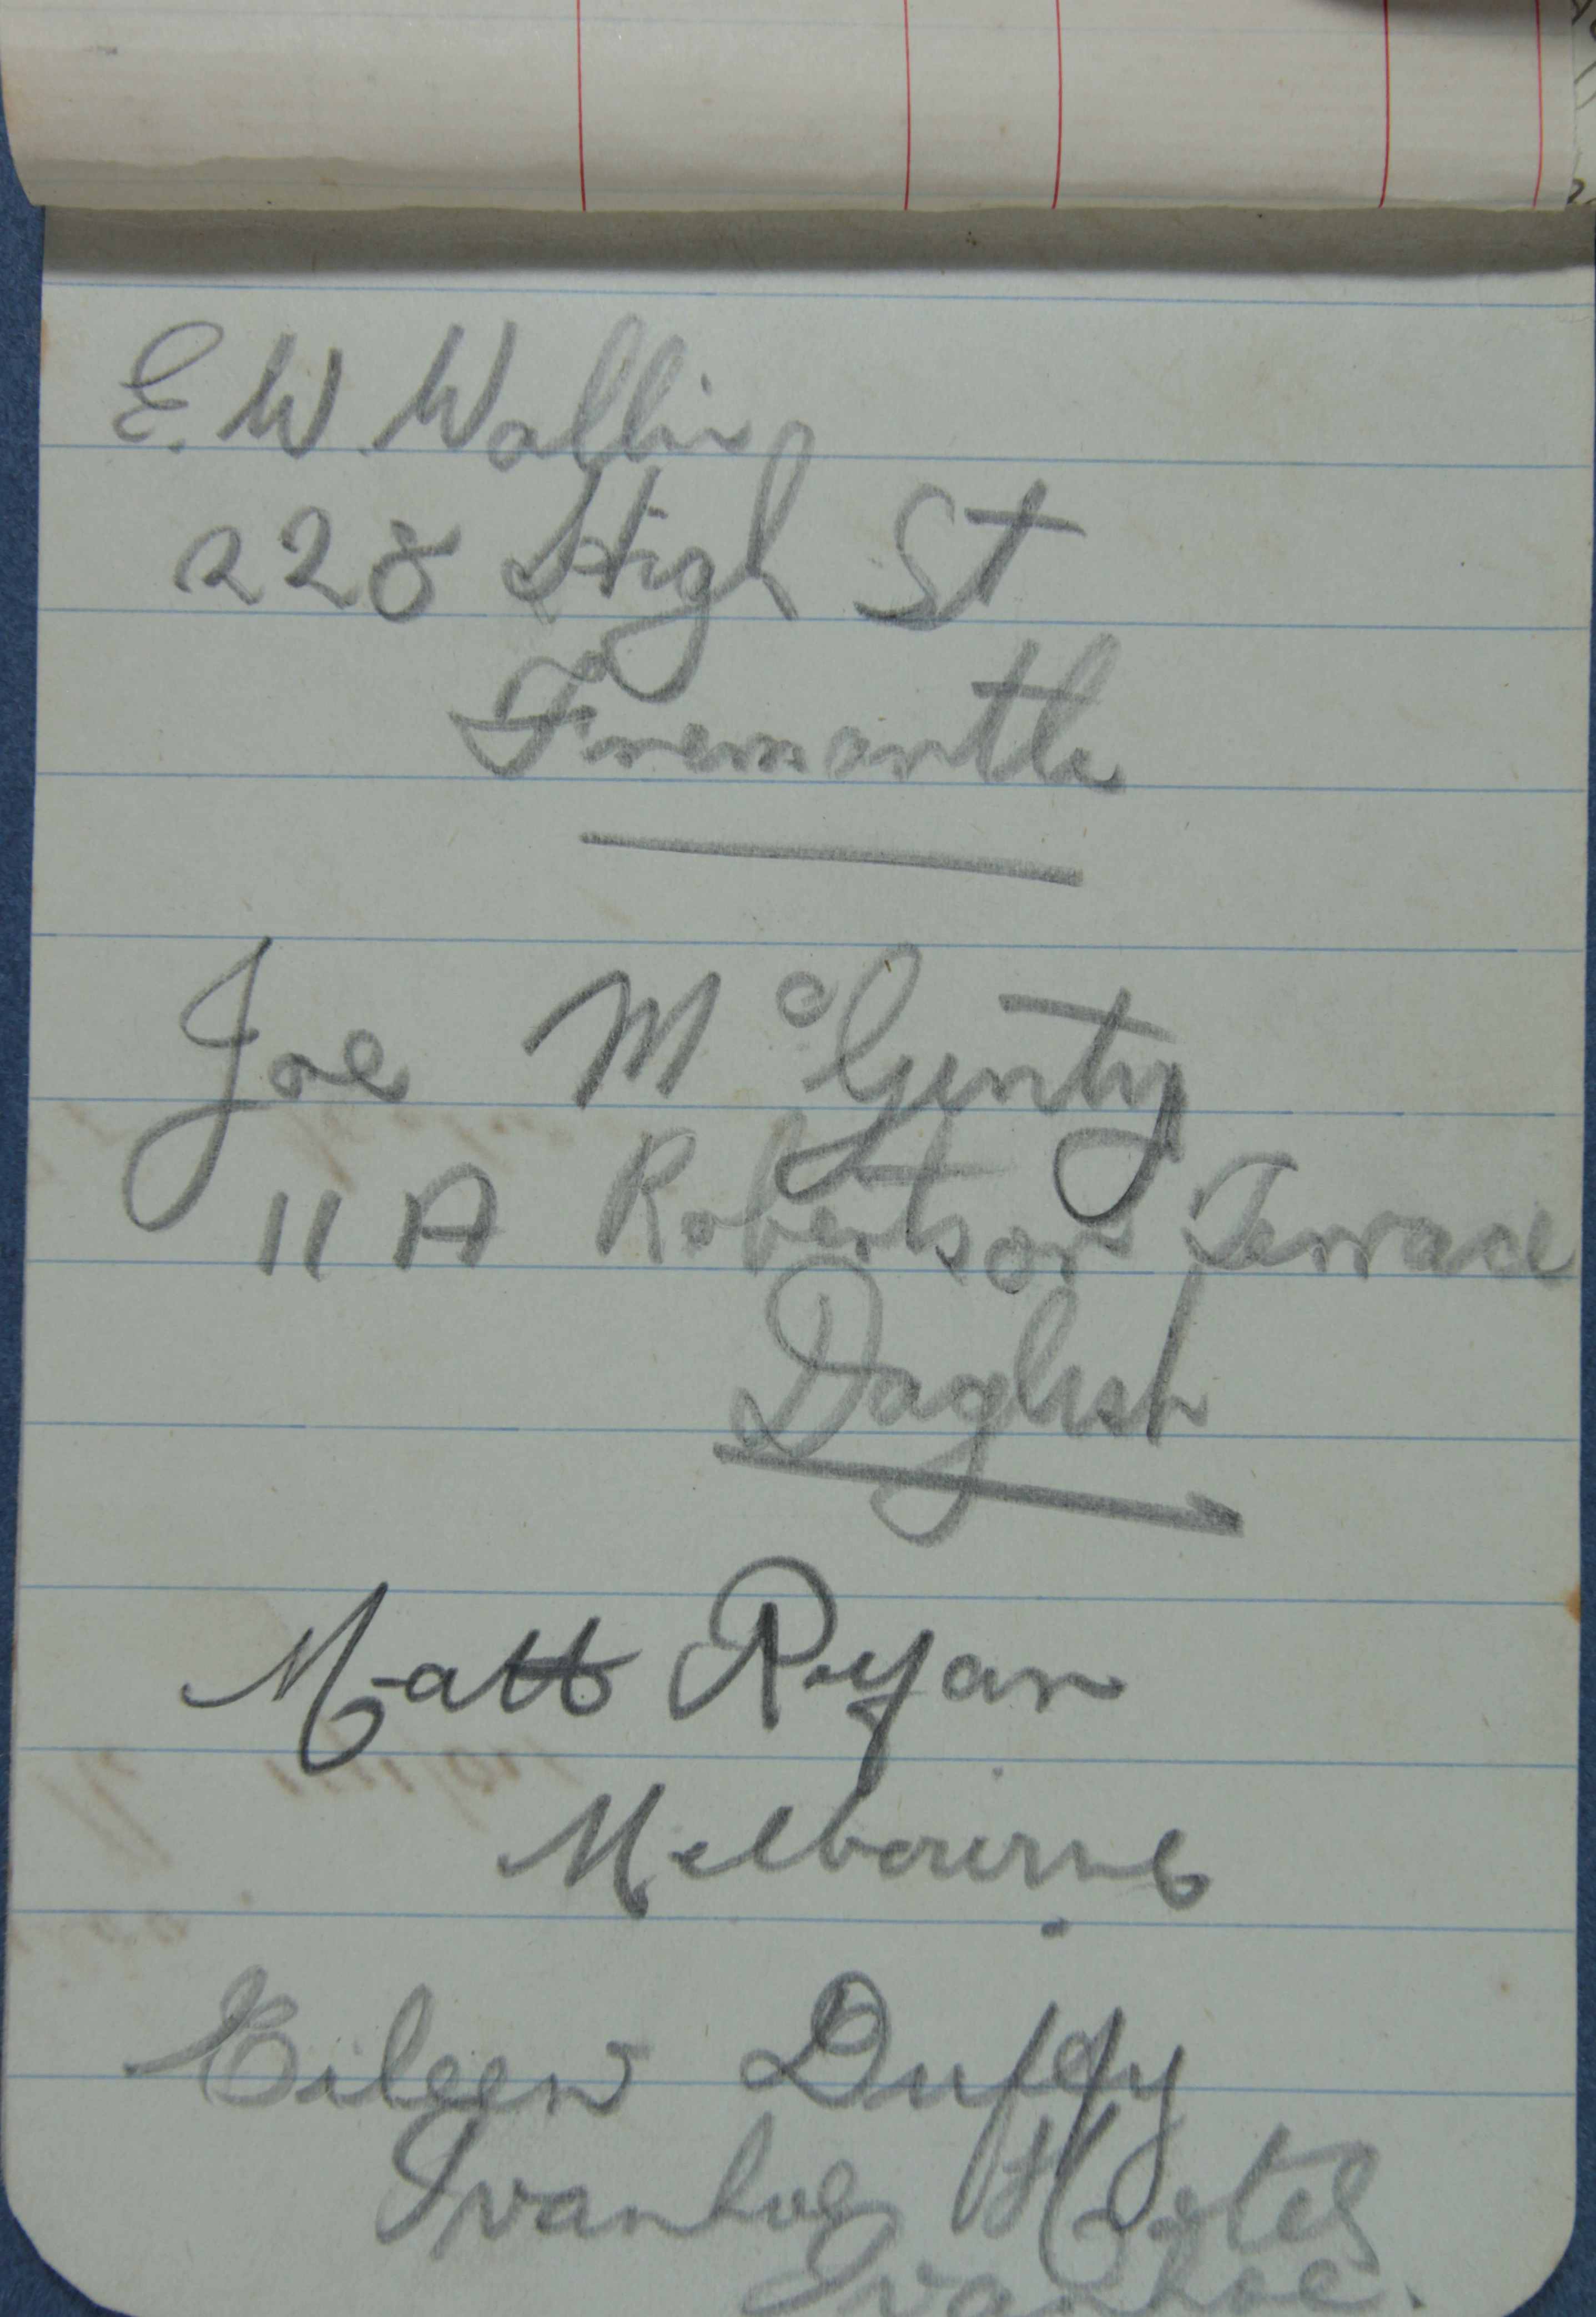 E. W. Wallis
228 High St
Fremantle
Joe McGinty
11 A Robertson Terrace
Daglish
Matt Ryan
Melbourne
Eileen Duffy
Ivanhoe Hotel
Ivanhoe.